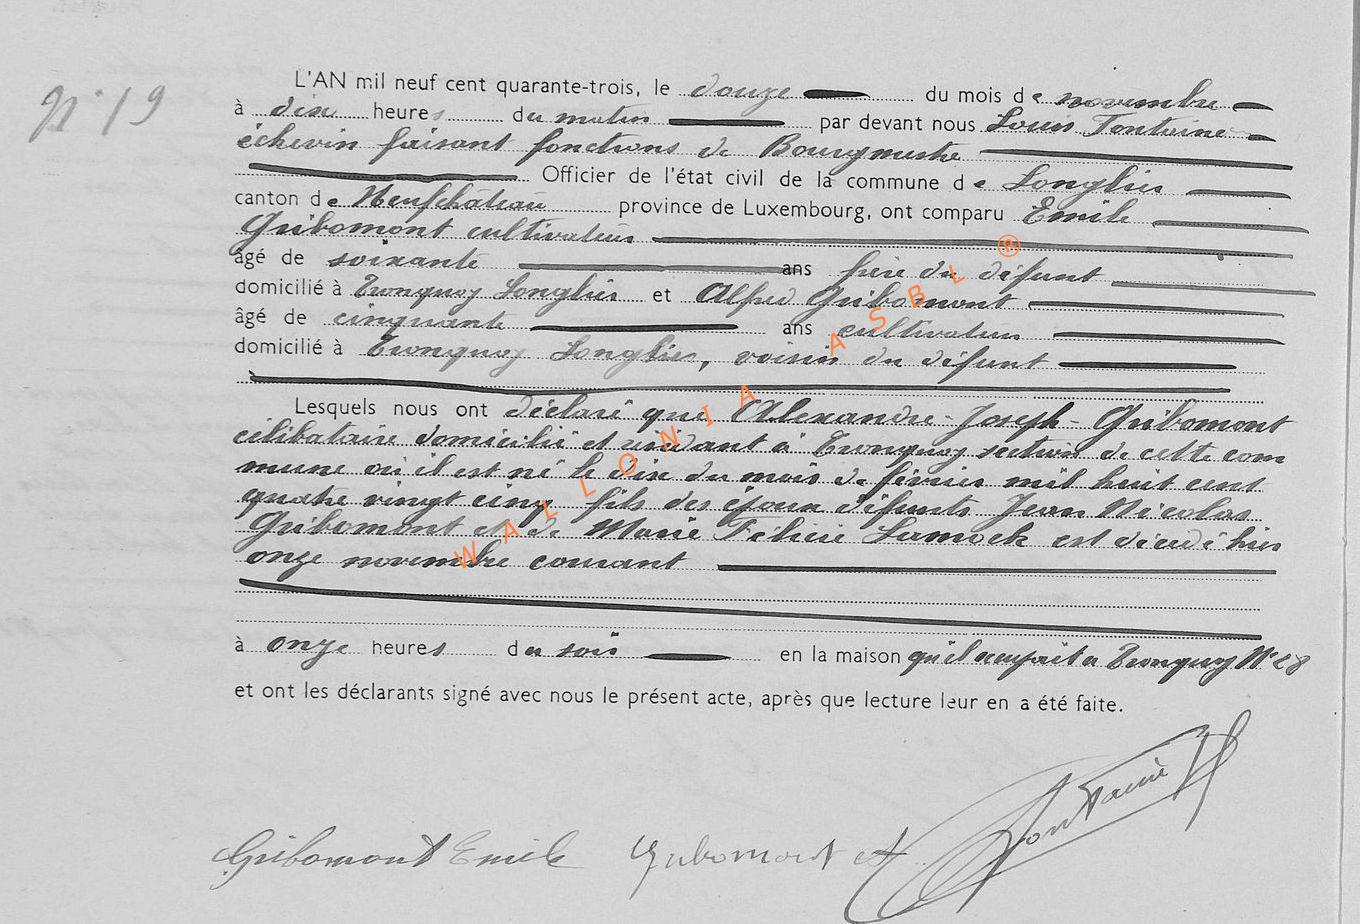 N° 19
L'AN mil neuf cent quarante-trois, le douze du mois de novembre
à dix heures du matin par devant nous Louis Fontaine
échevin faisant fonctions de Bourgmestre
Officier de l'état civil de la commune de Longlier
canton de Neufchâteau province de Luxembourg, ont comparu Emile
Gribomont cultivateur
âgé de soixante ans frère du défunt
domicilié à Tronquoy Longlier et Alfred Gribomont
âgé de cinquante ans cultivateur
domicilié à Tronquoy Longlier, voisin du défunt
Lesquels nous ont déclaré que Alexandre-Joseph-Gribomont
célibataire domicilié et résidant à Tronquoy section de cette com
mune où il est né le dix du mois de février mil huit cent
quatre vingt cinq fils des époux défunts Jean Nicolas
Gribomont et de Marie Félicie Lamock est décédé hier
onze novembre courant
à onze heures du soir en la maison qu'il occupait à Tronquoy N° 28
et ont les déclarants signé avec nous le présent acte, après que lecture leur en a été faite.
Gribomont Emile Gribomont Fontaine
WALLONIA ASBL ®